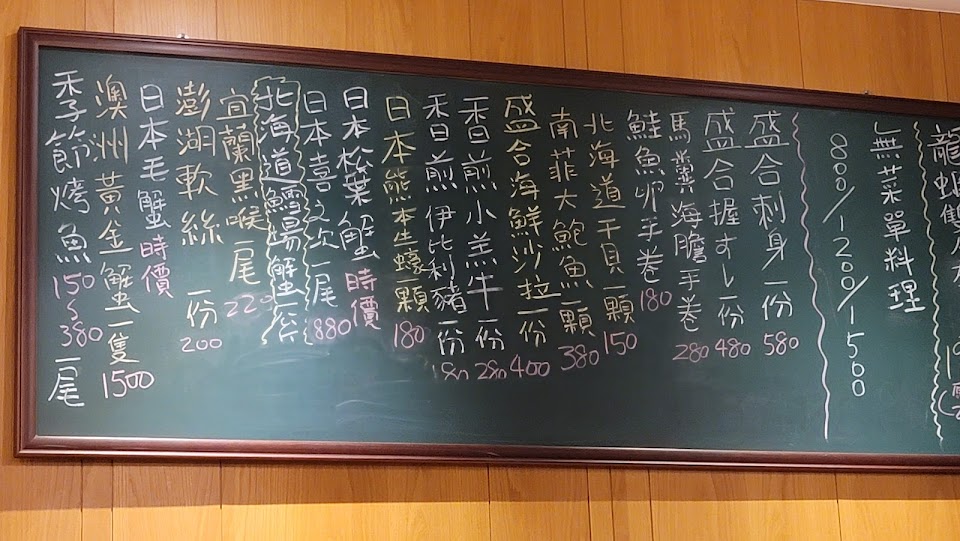 龍蝦雙
無菜單料理
800/1200/1500
盛合刺身一份580
盛合握すし一份480
馬糞海膽手卷280
鮭魚卵手卷180
北海道干貝一顆150
南菲大鮑魚一顆380
盛合海鮮沙拉一份400
香煎小羔牛一份280
香煎伊比利豬一份180
日本熊本生蠔一顆180
日本松葉蟹時價
日本喜之次一尾880
北海道鱈場蟹一份
宜蘭黑喉一尾220
澎湖軟絲一份200
日本毛蟹時價
澳洲黃金蟹一隻1500
季節烤魚150~380一尾